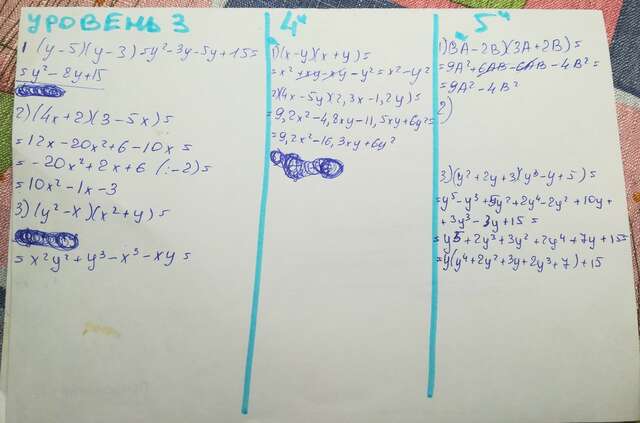 УРОВЕНЬ 3
1 (y-5)(y-3)=y²-3y-5y+15=
=y²-8y+15
2)(4x+2)(3-5x)=
=12x-20x²+6-10x=
=-20x²+2x+6 (:-2)=
=10x²-1x-3
3)(y²-x)(x²+y)=
=x²y²+y³-x³-xy=
4ч
1)(x-y)(x+y)=
=x²+xy-xy-y²=x²-y²
2)(4x-5y)(2,3x-1,2y)=
=9,2x²-4,8xy-11,5xy+6y²=
=9,2x²-16,3xy+6y²
5ч
1)(3A-2B)(3A+2B)=
=9A²+6AB-6AB-4B²=
=9A²-4B²
2)
3)(y²+2y+3)(y³-y+5)=
=y⁵-y³+5y²+2y⁴-2y²+10y+
+3y³-3y+15=
=y5+2y³+3y²+2y⁴+7y+15=
=y(y⁴+2y²+3y+2y³+7)+15